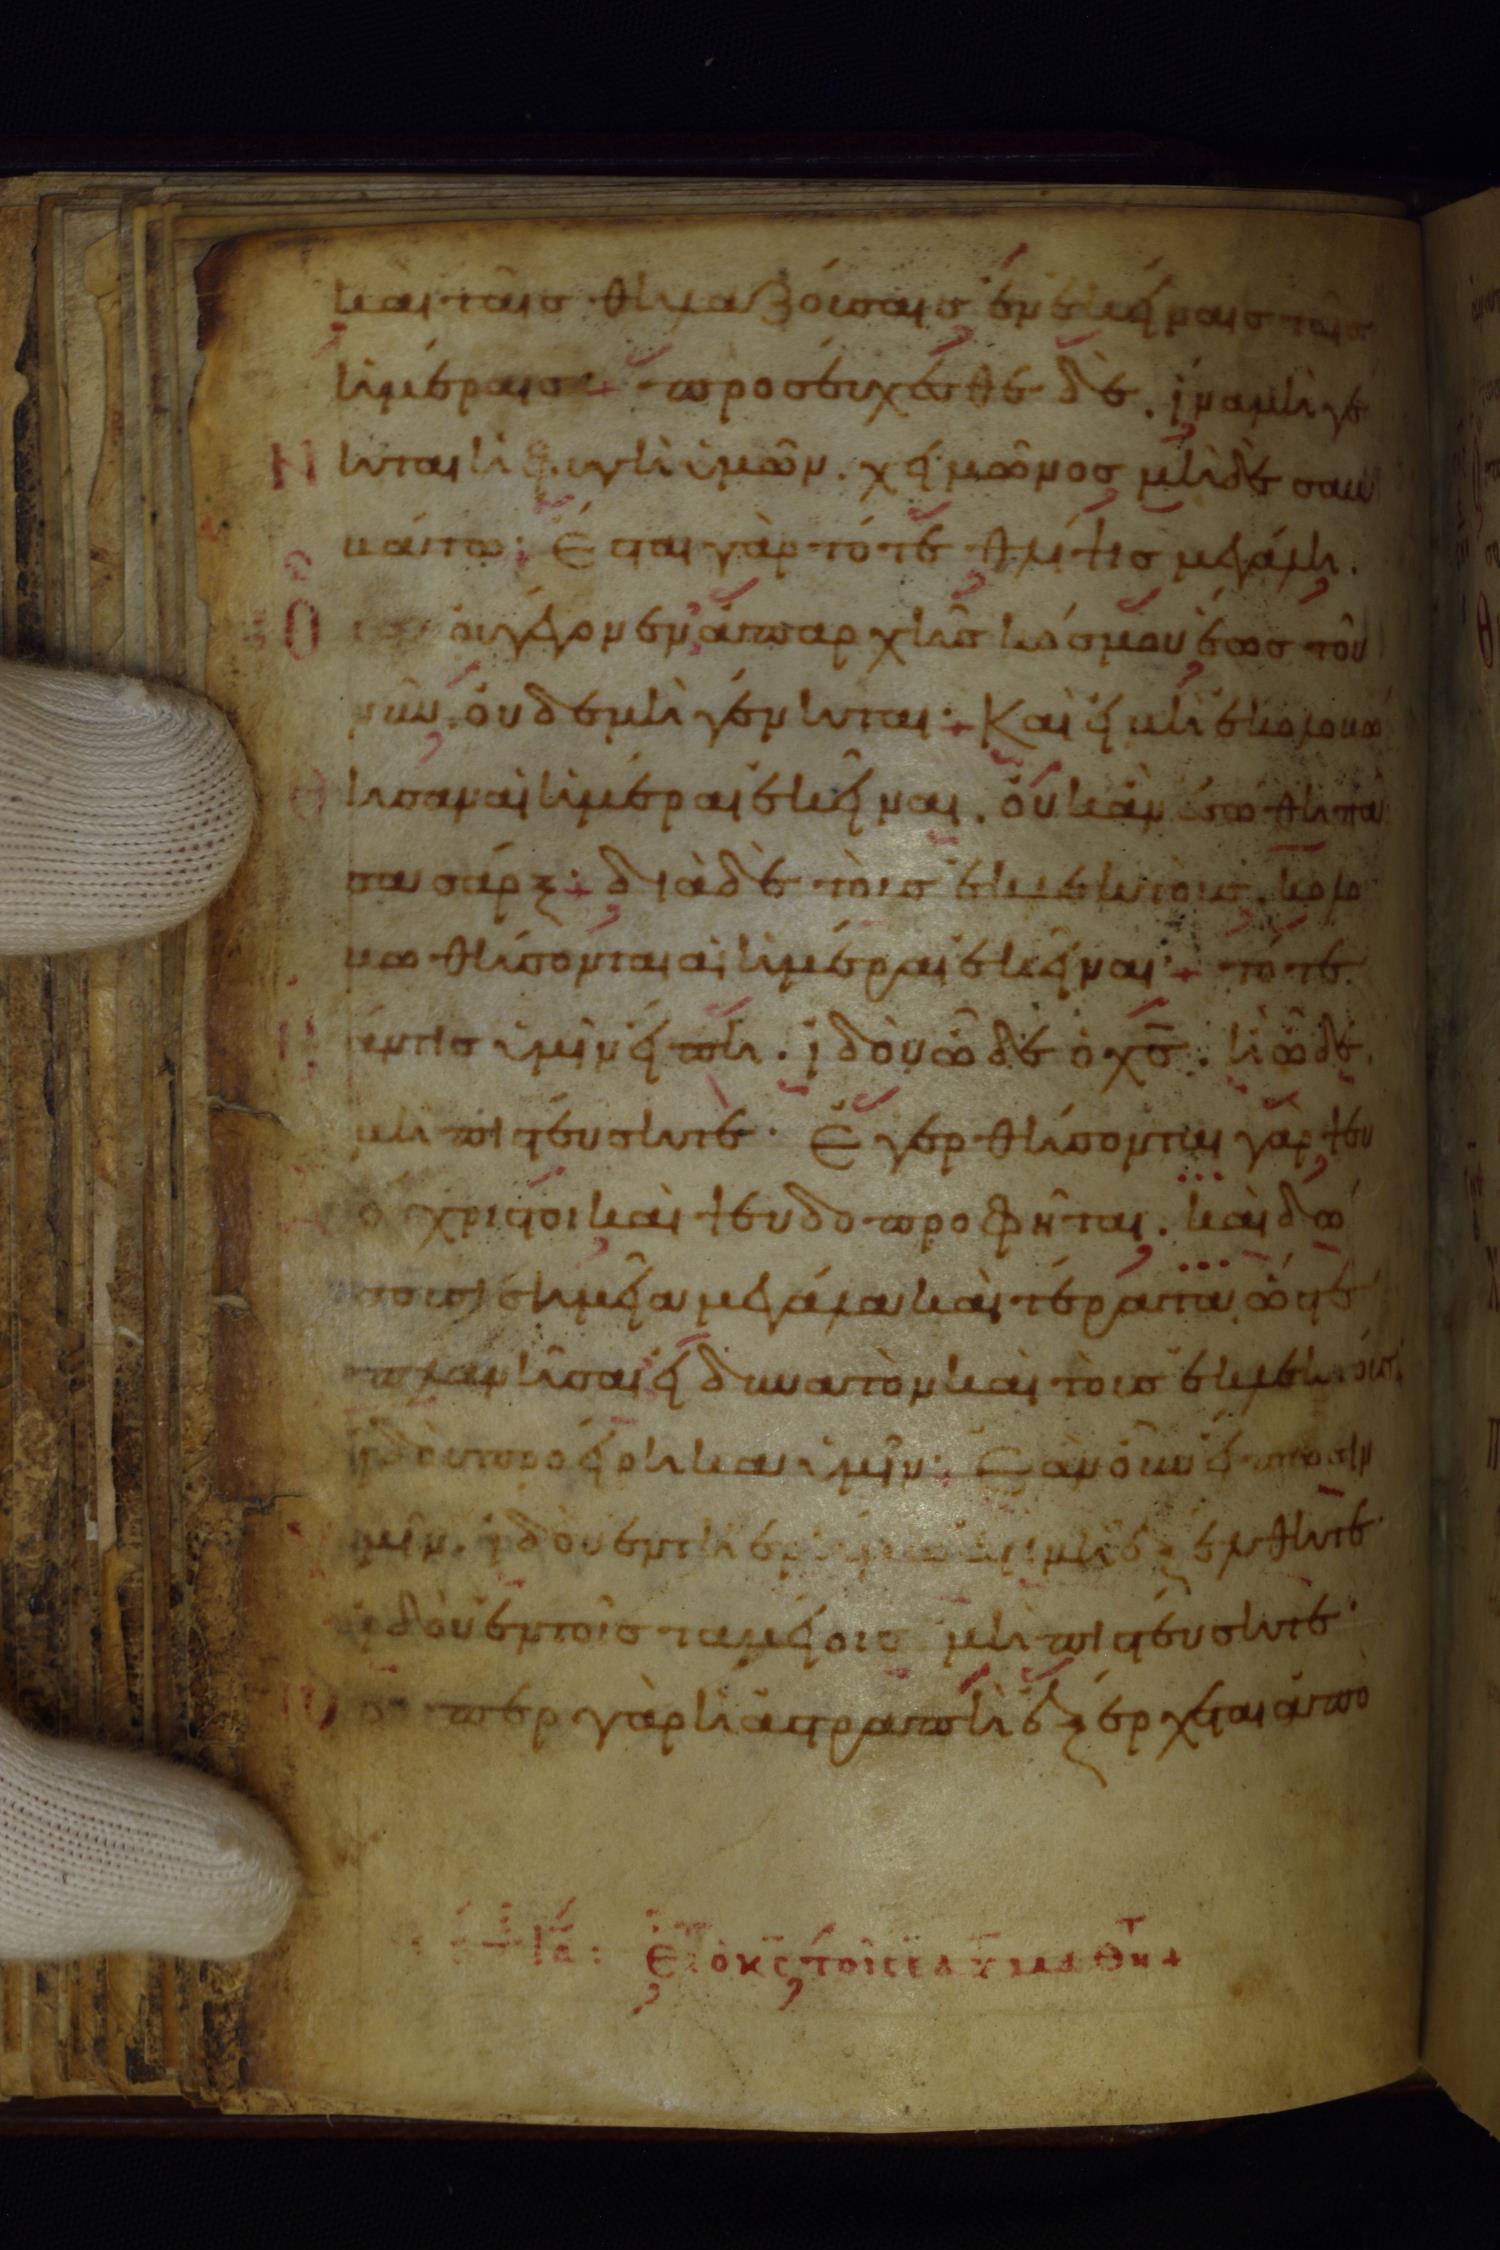 καὶ ταῖς θηλαζούσαις ἐν ἐκείναις ταῖς
ἡμέραις· + προσέυχεσθε δὲ. ἵνα μὴ γέ
νηται ἡ φυγὴ ὑμῶν. χειμῶνος μηδὲ σαβ
βάτω· Ἔσται γὰρ τότε θλίψις μεγάλη.
Ο οὐ γέγονεν ἀπαρχῆς κόσμου ἕως τοῦ
νῦν. οὐδ ε μὴ γένηται· + Καὶ εἰ μὴ ἐκολοβώ
θησαν αἱ ἡμέραι ἐκεῖναι. οὐκ ἂν ἐσώθη πᾶ
σα σάρξ· + διὰ δὲ τοὺς ἐκλεκτοὺς. κολο
βωθήσονται αἱ ἡμέραι ἐκεῖναι· + τότε
ἐάν τις ὑμῖν εἴπη. ἰδοὺ ὧδε ὁ χς. ἢ ὧδε.
μὴ πιστεύσητε· Ἐγερθήσονται γὰρ ψευ
δόχριστοι καὶ ψευδοπροφῆται. καὶ δώ
σουσι σημεῖα μεγάλα καὶ τέρατα ὥστε
πλανῆσαι εἰ δυνατὸν καὶ τοὺς ἐκλεκτούς.
ἰδοὺ προείρηκα ὑμῖν· Ἐὰν οὖν εἴπωσιν
ὑμῖν. ἰδοὺ ἐν τῆ ἐρήμω ἐστι μὴ ἐξέλθητε·
ἰδοὺ ἐν τοῖς ταμείοις μὴ πιστεύσητε·
Ὥσπερ γὰρ ἡ ἀστραπὴ ἐξέρχεται ἀπὸ
Εἶ ὁ κς τοῖς ε μαθη +